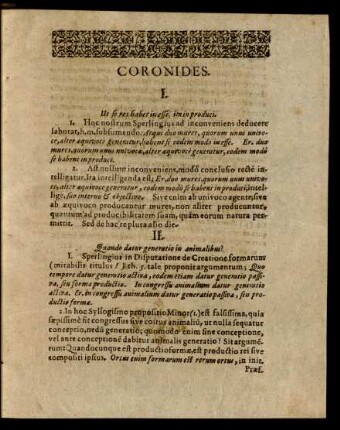 CORONIDES.
I.
Ut se res habet in esse, ita in produci.
1. Hoc nostrum Sperlingius ad inconveniens deducere
laborat, h.m. subsumendo: Atqui duo mures, quorum unus univo-
ce, alter æquivoce generatur, habent se eodem modo in esse. Er. duo
mures, quorum unus univoce, alter æquivoce generatur, eodem modo
se habent in produci.
2. Ast nullum inconveniens, modò conclusio rectè in-
telligatur. Ita intelligenda est; Er. duo mures, quorum unus univo-
ce, alter æquivoce generatur, eodem modo se habent in produci, intel-
lige, suo interno & objectivo. Sive enim ab univoco agente, sive
ab æquivoco producantur mures, non aliter producuntur,
quantum ad producibilitatem suam, quàm eorum natura per-
mittit. Sed de hac re plura alio die.
II.
Quando datur generatio in animalibus?
1. Sperlingius in Disputatione de Creatione formarum
(mirabilis titulus!) th. 7. tale proponit argumentum; Quo
tempore datur generatio activa, eodem etiam datur generatio passi-
va, seu forma productio. In congressu animalium datur generatio
activa. E. in congressu animalium datur generatio passiva, seu pro-
ductio formæ.
2. In hoc Syllogismo propositio Minor (1.) est falsissima, quia
sæpissimè fit congressus sive coitus animaliū, ut nulla sequatur
conceptio, nedū generatio; quomodo enim sine conceptione,
vel ante conceptionē dabitur animalis generatio? Sit argumē-
tum: Quandocunque est productio formæ, est productio rei sive
compositi ipsius. Ortus enim formarum est rerum ortus, in init.
Præf.